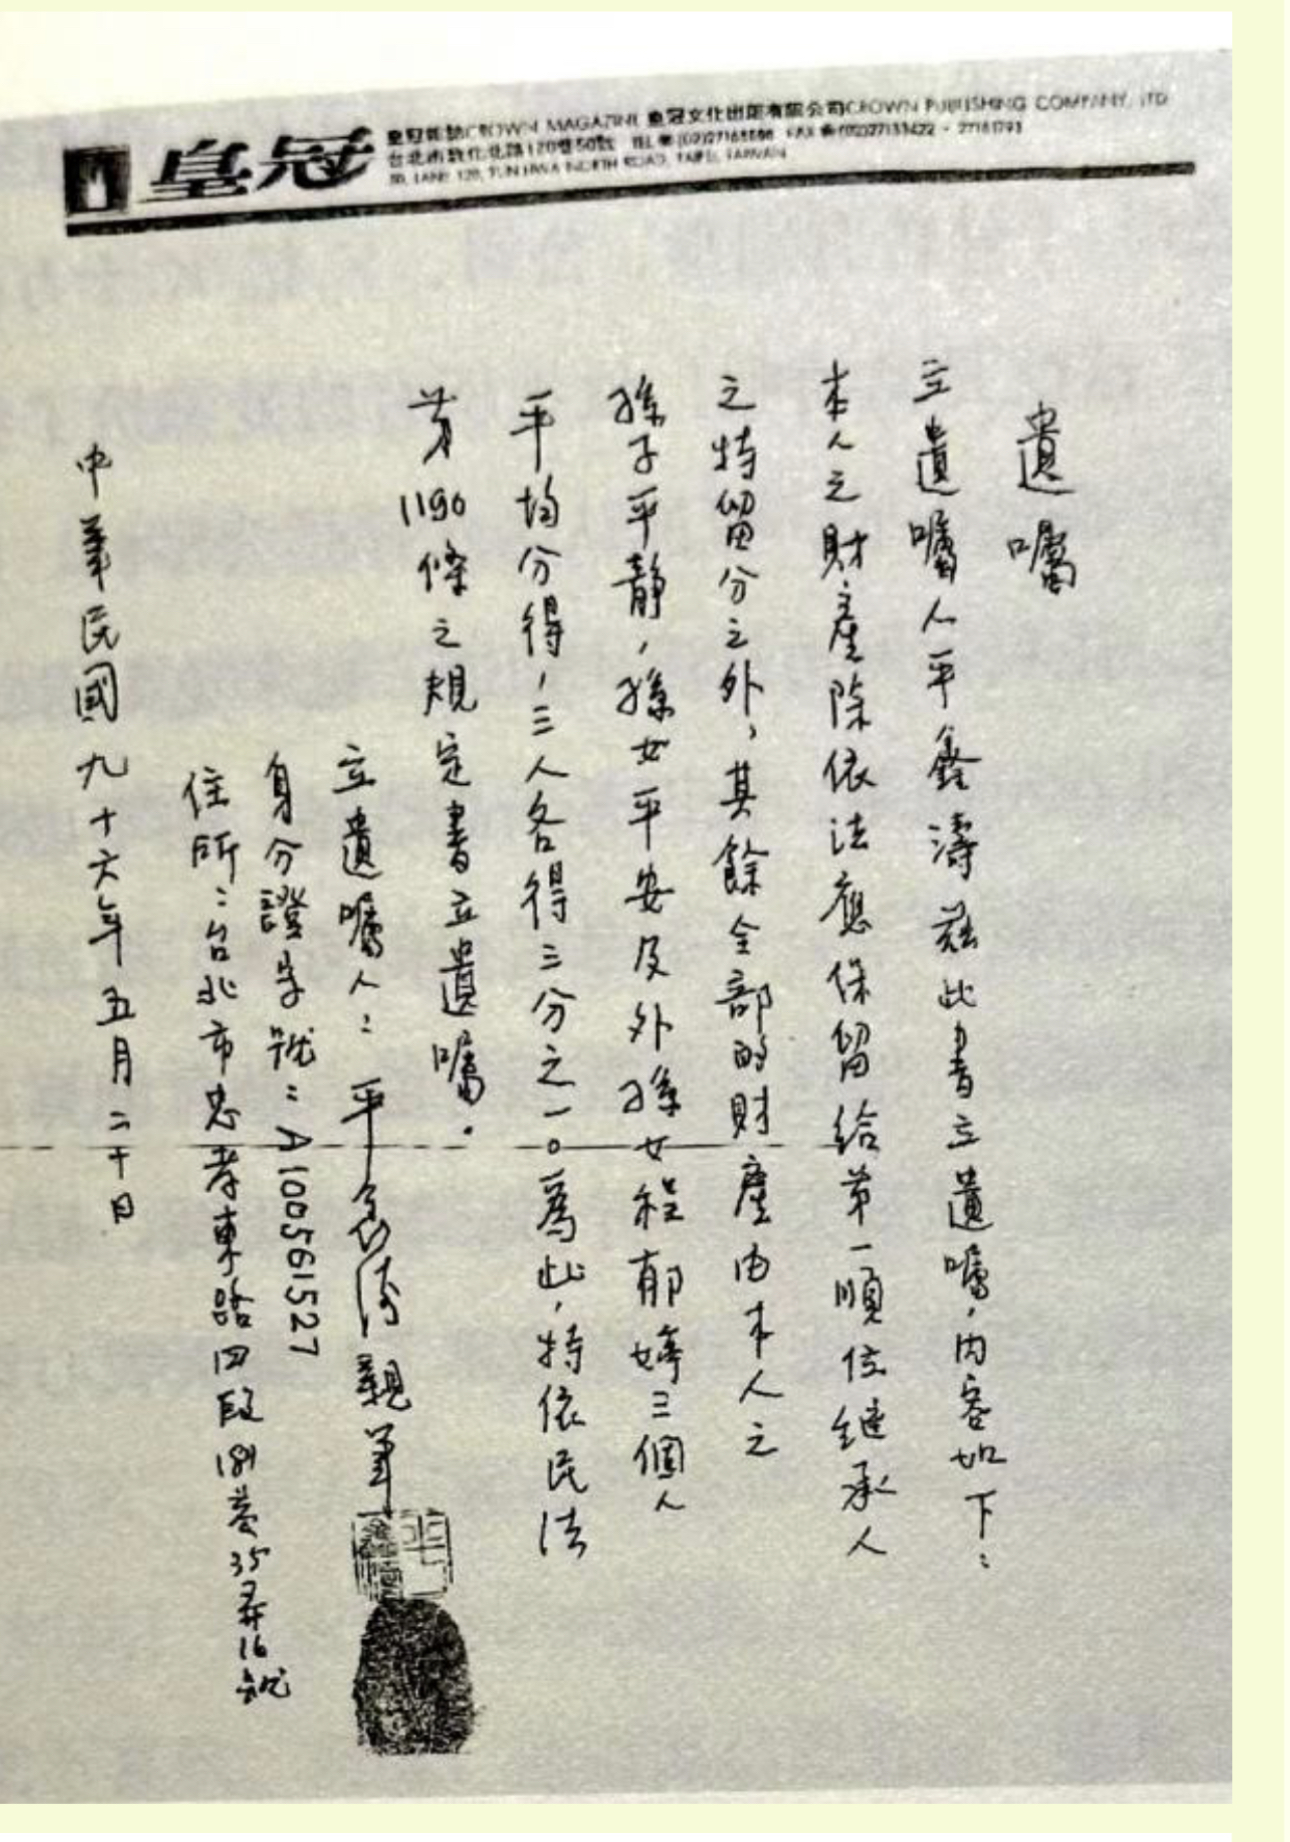 皇冠
皇冠雜誌CROWN MAGAZINE 皇冠文化出版有限公司CROWN PUBLISHING COMPANY, LTD
台北市敦化北路120巷50號 TEL (02)27168888 FAX (02)27133422 · 27181793
50, LANE 120, TUN HWA NORTH ROAD, TAIPEI, TAIWAN
遺囑
立遺囑人平鑫濤茲此書立遺囑，內容如下：
本人之財產除依法應保留給第一順位繼承人
之特留分之外，其餘全部的財產由本人之
孫子平靜，孫女平安及外孫女程郁婷三個人
平均分得，三人各得三分之一。為此，特依民法
第1190條之規定書立遺囑。
立遺囑人：平鑫濤親筆
平鑫
身分證字號：A100561527
住所：台北市忠孝東路四段181巷35弄16號
中華民國九十六年五月二十日